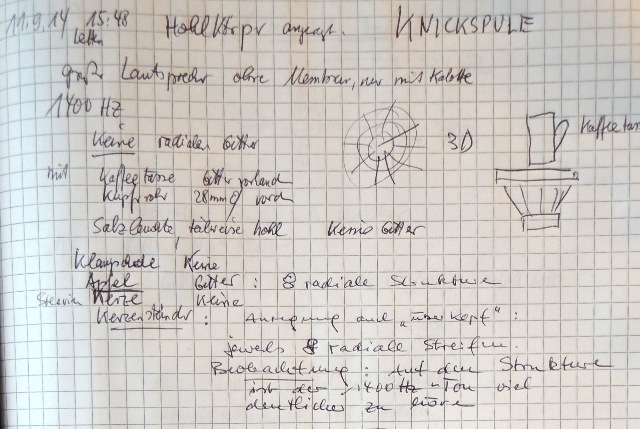 11.9.14 15:48 Hohlkörper angeregt. KNICKSPULE
großer Lautsprecher ohne Membran, nur mit Kalotte
1400 HZ
Keine radialen Gitter 3D Kaffeetas
mit Kaffeetasse Gitter vorhand
Kupferrohr 28mm vorh
Salzlaudate, teilweise hohl Keine Gitter
Keine
Apfel Gitter: 8 radiale Strukturen
Stearin Kerze Keine
Kerzenständer: Anregung auch „über Kopf“:
jeweils 8 radiale Streifen.
Beobachtung: Auf den Strukturen
ist der 1400 Hz-Ton viel
deutlicher zu hören